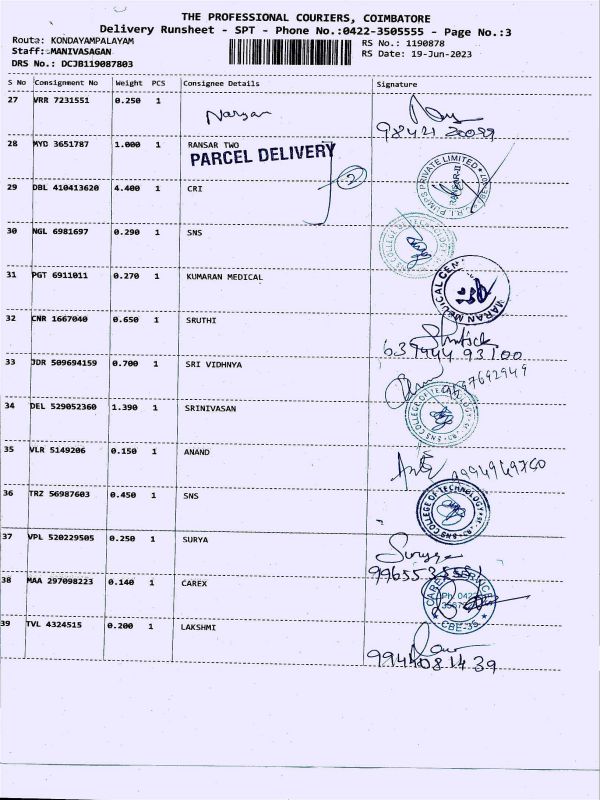 THE PROFESSIONAL COURIERS, COIMBATORE
Delivery Runsheet - SPT - Phone No.:0422-3505555 - Page No.:3
Route: KONDAYAMPALAYAM RS No.: 1190878
Staff: MANIVASAGAN RS Date: 19-Jun-2023
DRS No.: DCJB119087803
S No Consignment No Weight PCS Consignee Details Signature
27 VRR 7231551 0.250 1 Naryan
28 MYD 3651787 1.000 1 RANSAR TWO
PARCEL DELIVERY 2
29 DBL 410413620 4.400 1 CRI
30 NGL 6981697 0.290 1 SNS
31 PGT 6911011 0.270 1 KUMARAN MEDICAL
32 CNR 1667040 0.650 1 SRUTHI
33 JDR 509694159 0.700 1 SRI VIDHNYA
34 DEL 529052360 1.390 1 SRINIVASAN
SNS COLLEGE OF TECHNOLOGY
35 VLR 5149206 0.150 1 ANAND
36 TRZ 56987603 0.450 1 SNS
SNS COLLEGE OF TECHNOLOGY
37 VPL 520229505 0.250 1 SURYA
Surya
38 MAA 297098223 0.140 1 CAREX
CBE-35
39 TVL 4324515 0.200 1 LAKSHMI
9944081439